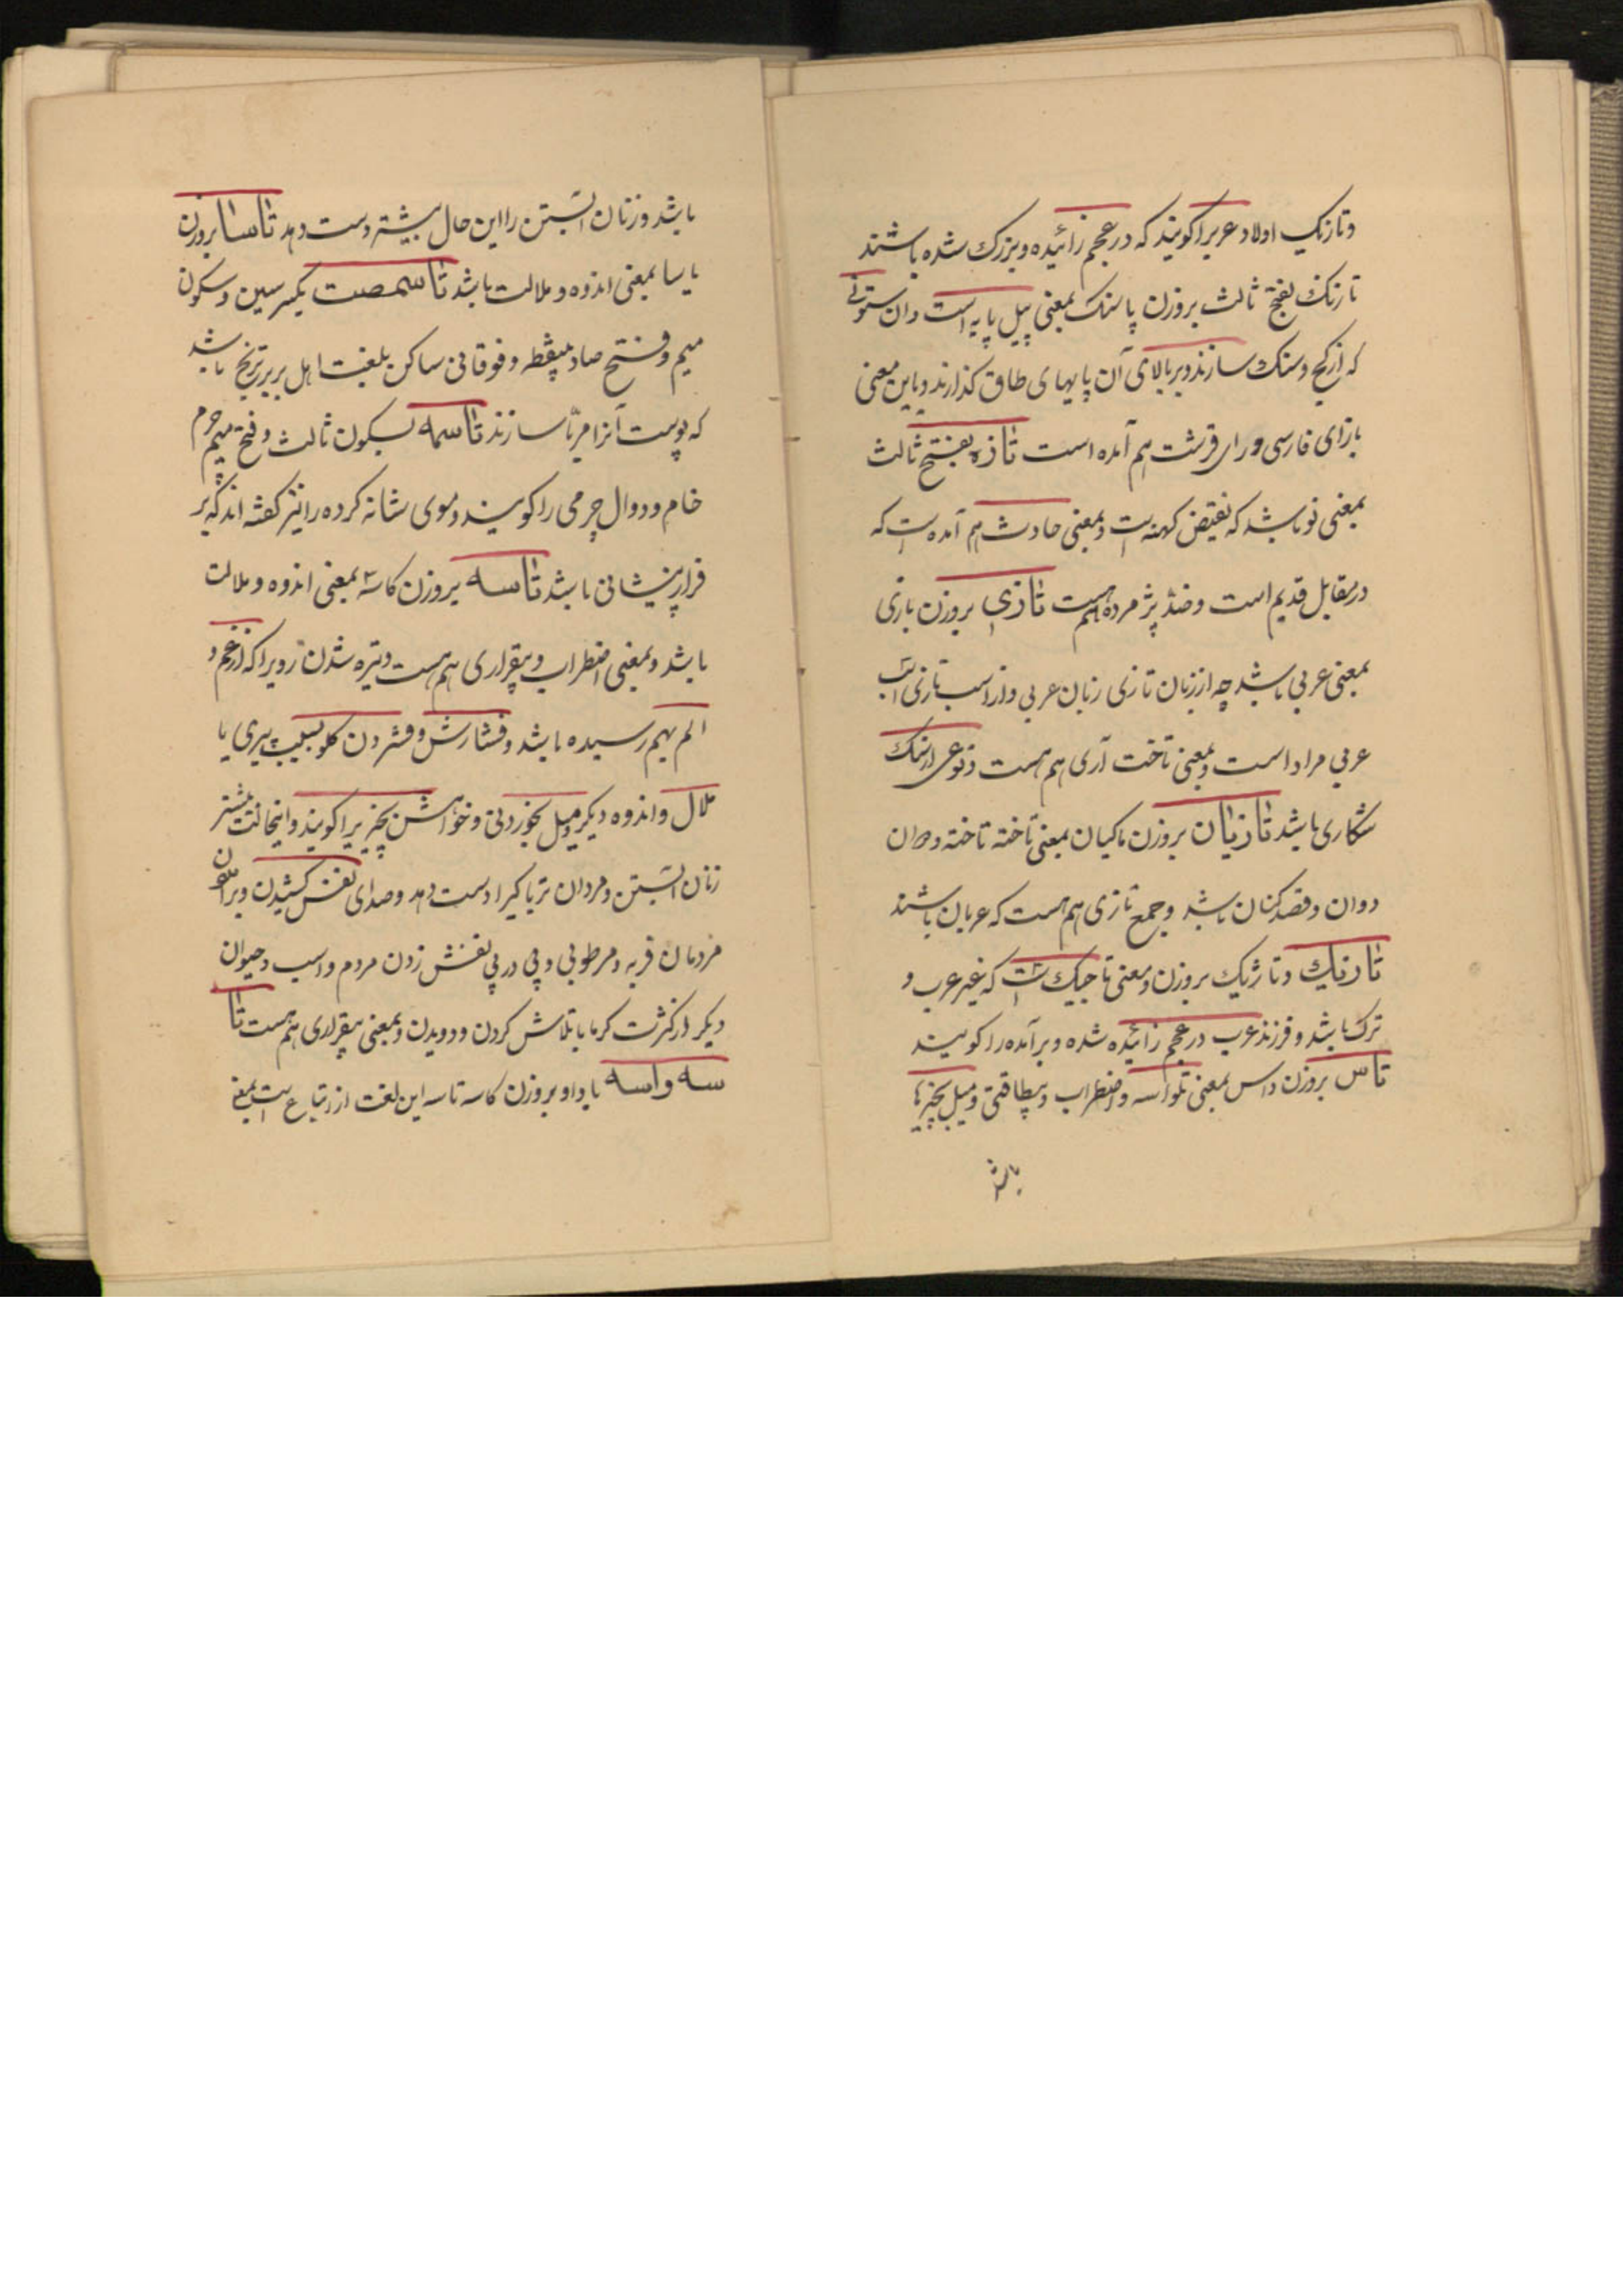 وتازیک اولاد عربرا کویند که در عجم زائیده و بزرک شده باشند
تازنک بفتح ثالث بروزن پاسنک بمعنی پیل پایه است وان ستونی
که از کچ و سنک سازند و بر بالای آن پایهای طاق کذارند و باین معنی
بازای فارسی و رای قرشت هم آمده است تازه بفتح ثالث
بمعنی نو باشد که نقیض کهنه است و بمعنی حادث هم آمده است که
در مقابل قدیم است و ضد پژمرده هم هست تازی بروزن بازی
بمعنی عربی باشد چه از زبان تازی زبان عربی و از اسب تازی اسب
عربی مراد است و بمعنی تاخت آری هم هست و نوعی از سک
شکاری باشد تازیان بروزن ماکیان بمعنی تاخته تاخته و
دوان و قصد کنان باشد و جمع تازی هم هست که عربان باشند
تازیک و تاژیک بروزن و معنی تاجیک است که غیر عرب و
ترک باشد و فرزند عرب در عجم زائیده شده و برآمده را کویند
تاس بروزن داس بمعنی تلواسه و اضطراب و بیطاقتی و میل بچیزها
باشد
باشد و زنان آبستن را این حال بیشتر دست دهد تاسا بروزن
یاسا بمعنی اندوه و ملالت باشد تاسمصت بکسر سین و سکون
میم و فتح صاد بینقطه و فوقانی ساکن بلغت اهل بربر ترنج باشد
که پوست آنرا مربا سازند تاسمه بسکون ثالث و فتح میم چرم
خام و دوال چرمی را کویند و موی شانه کرده را نیز کفته اند که بر
فراز پیشانی باشد تاسه بروزن کاسه بمعنی اندوه و ملالت
باشد و بمعنی اضطراب و بیقراری هم هست و تیره شدن رویرا که از غم و
الم بهم رسیده باشد و فشارش و فشردن کلو بسبب سیری یا
ملال و اندوه دیکر و میل بخوردنی و خواهش بچیزیرا کویند و اینحالت بیشتر
زنان آبستن و مردان تریاکیرا دست دهد و صدای نفس کشیدن و
مردمان فربه و مرطوبی و پی در پی نفس زدن مردم و اسب و حیوان
دیکر از کثرت کرما یا تلاش کردن و دویدن و بمعنی بیقراری هم هست تا
سه واسه با واو بروزن کاسه تاسه این لغت از اتباع است بمعنی